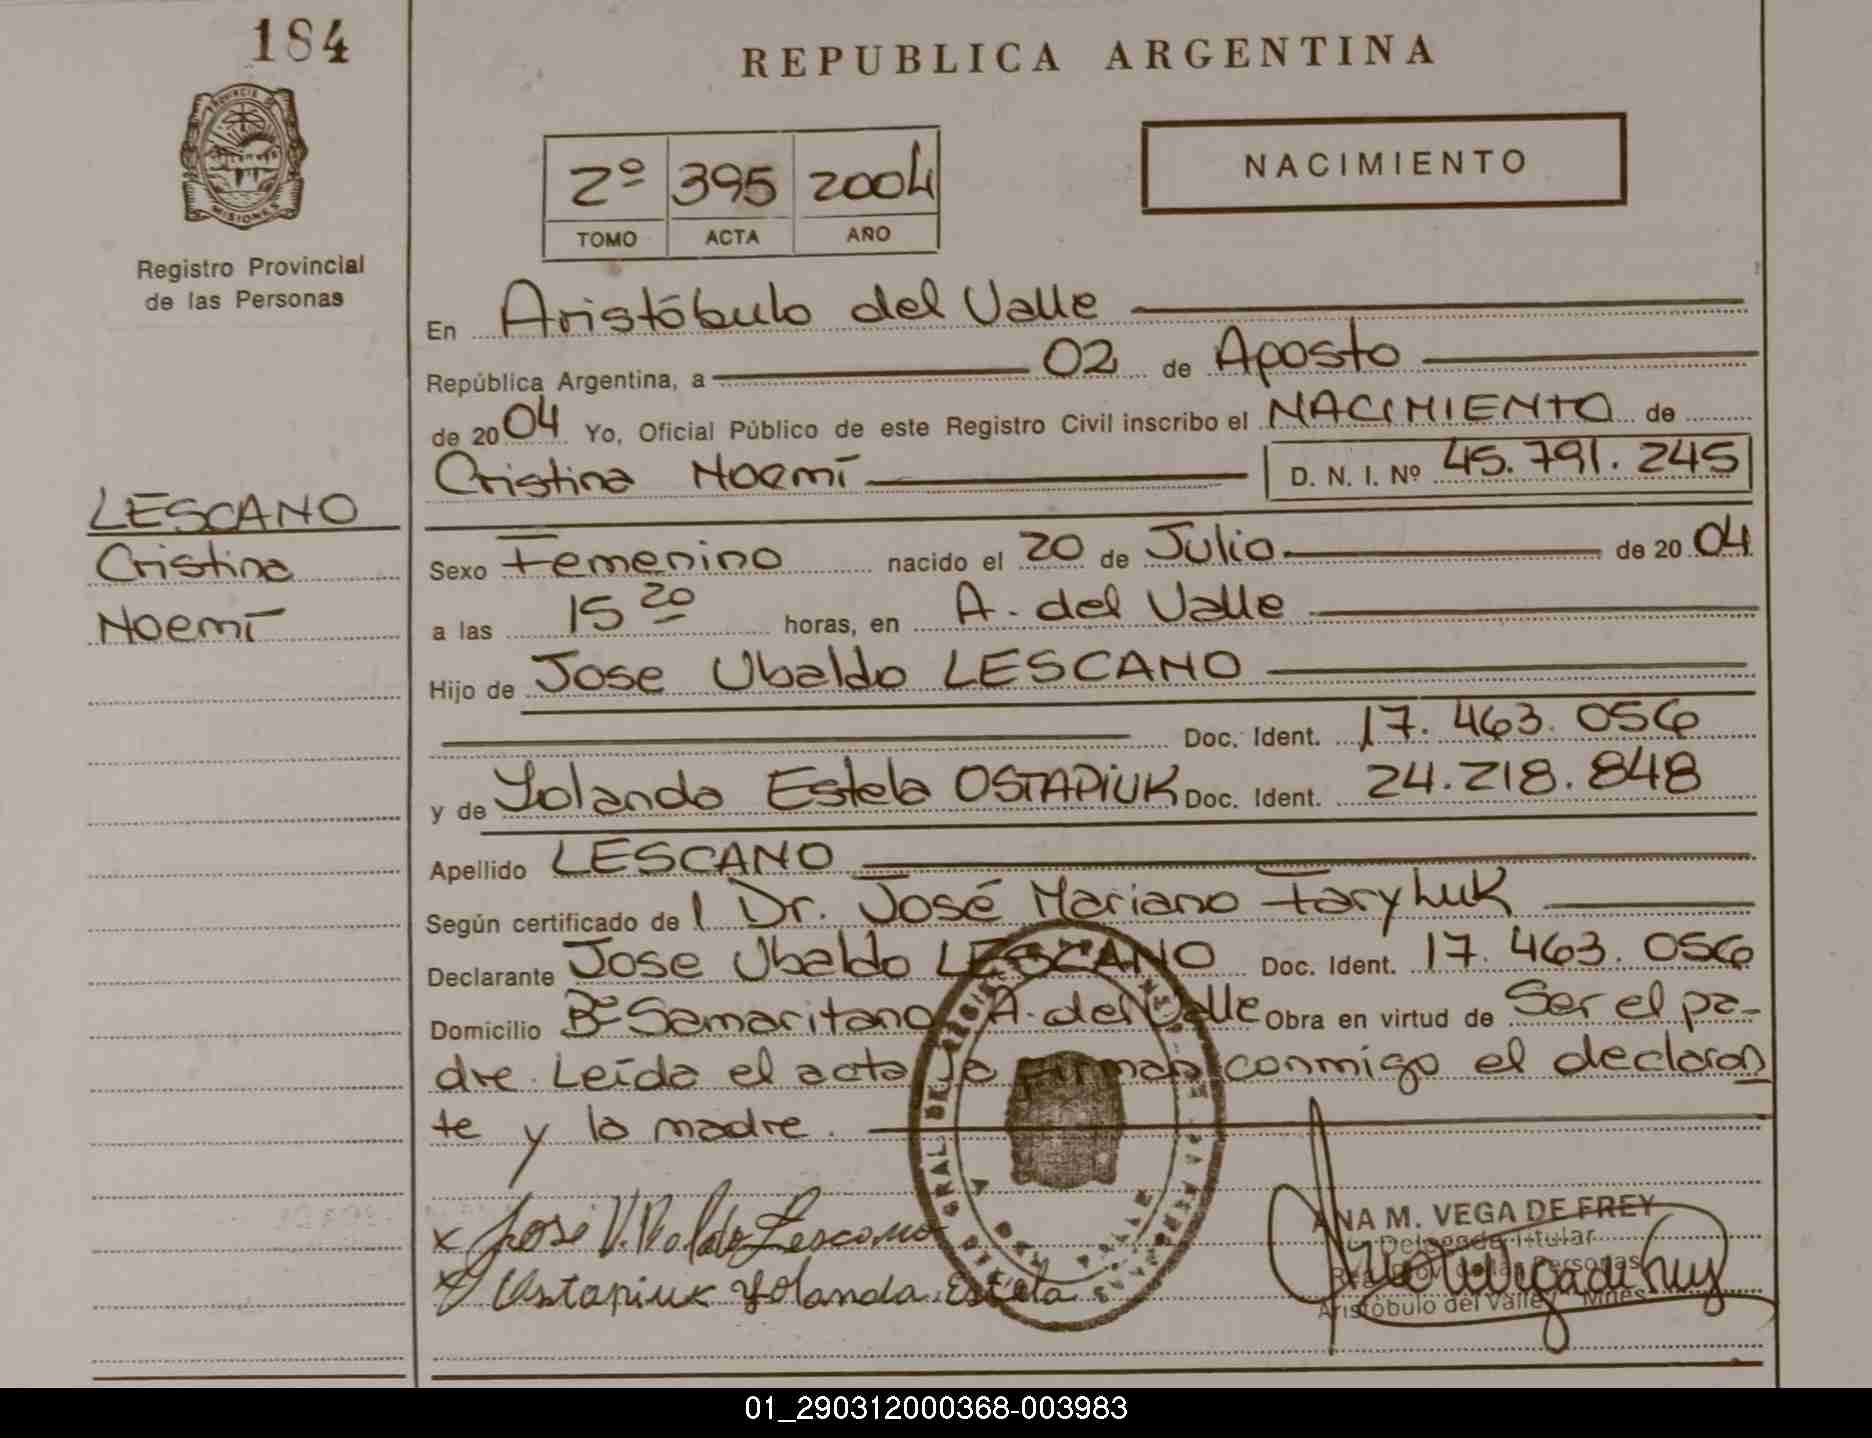 184
REPUBLICA ARGENTINA
PROVINCIA DE
MISIONES
Registro Provincial
de las Personas
2º 395 2004
TOMO ACTA AÑO
NACIMIENTO
En Aristóbulo del Valle
República Argentina, a 02 de Agosto
de 2004 Yo, Oficial Público de este Registro Civil inscribo el NACIMIENTO de
Cristina Noemí D. N. I. Nº 45.791.245
LESCANO
Cristina
Noemí
Sexo Femenino nacido el 20 de Julio de 2004
a las 15 20 horas, en A. del Valle
Hijo de Jose Ubaldo LESCANO
Doc. Ident. 17.463.056
y de Yolanda Estela OSTAPIUK Doc. Ident. 24.218.848
Apellido LESCANO
Según certificado de l Dr. José Mariano Faryluk
Declarante Jose Ubaldo LESCANO Doc. Ident. 17.463.056
Domicilio Bº Samaritano A. del Valle Obra en virtud de Ser el pa-
dre. Leída el acta la firman conmigo el declaran
te y la madre.
x José Lescano
Ostapiuk Yolanda Estela
ANA M. VEGA DE FREY
Delegada Titular
Reg. Prov. de las Personas
Aristóbulo del Valle - Mnes
01_290312000368-003983